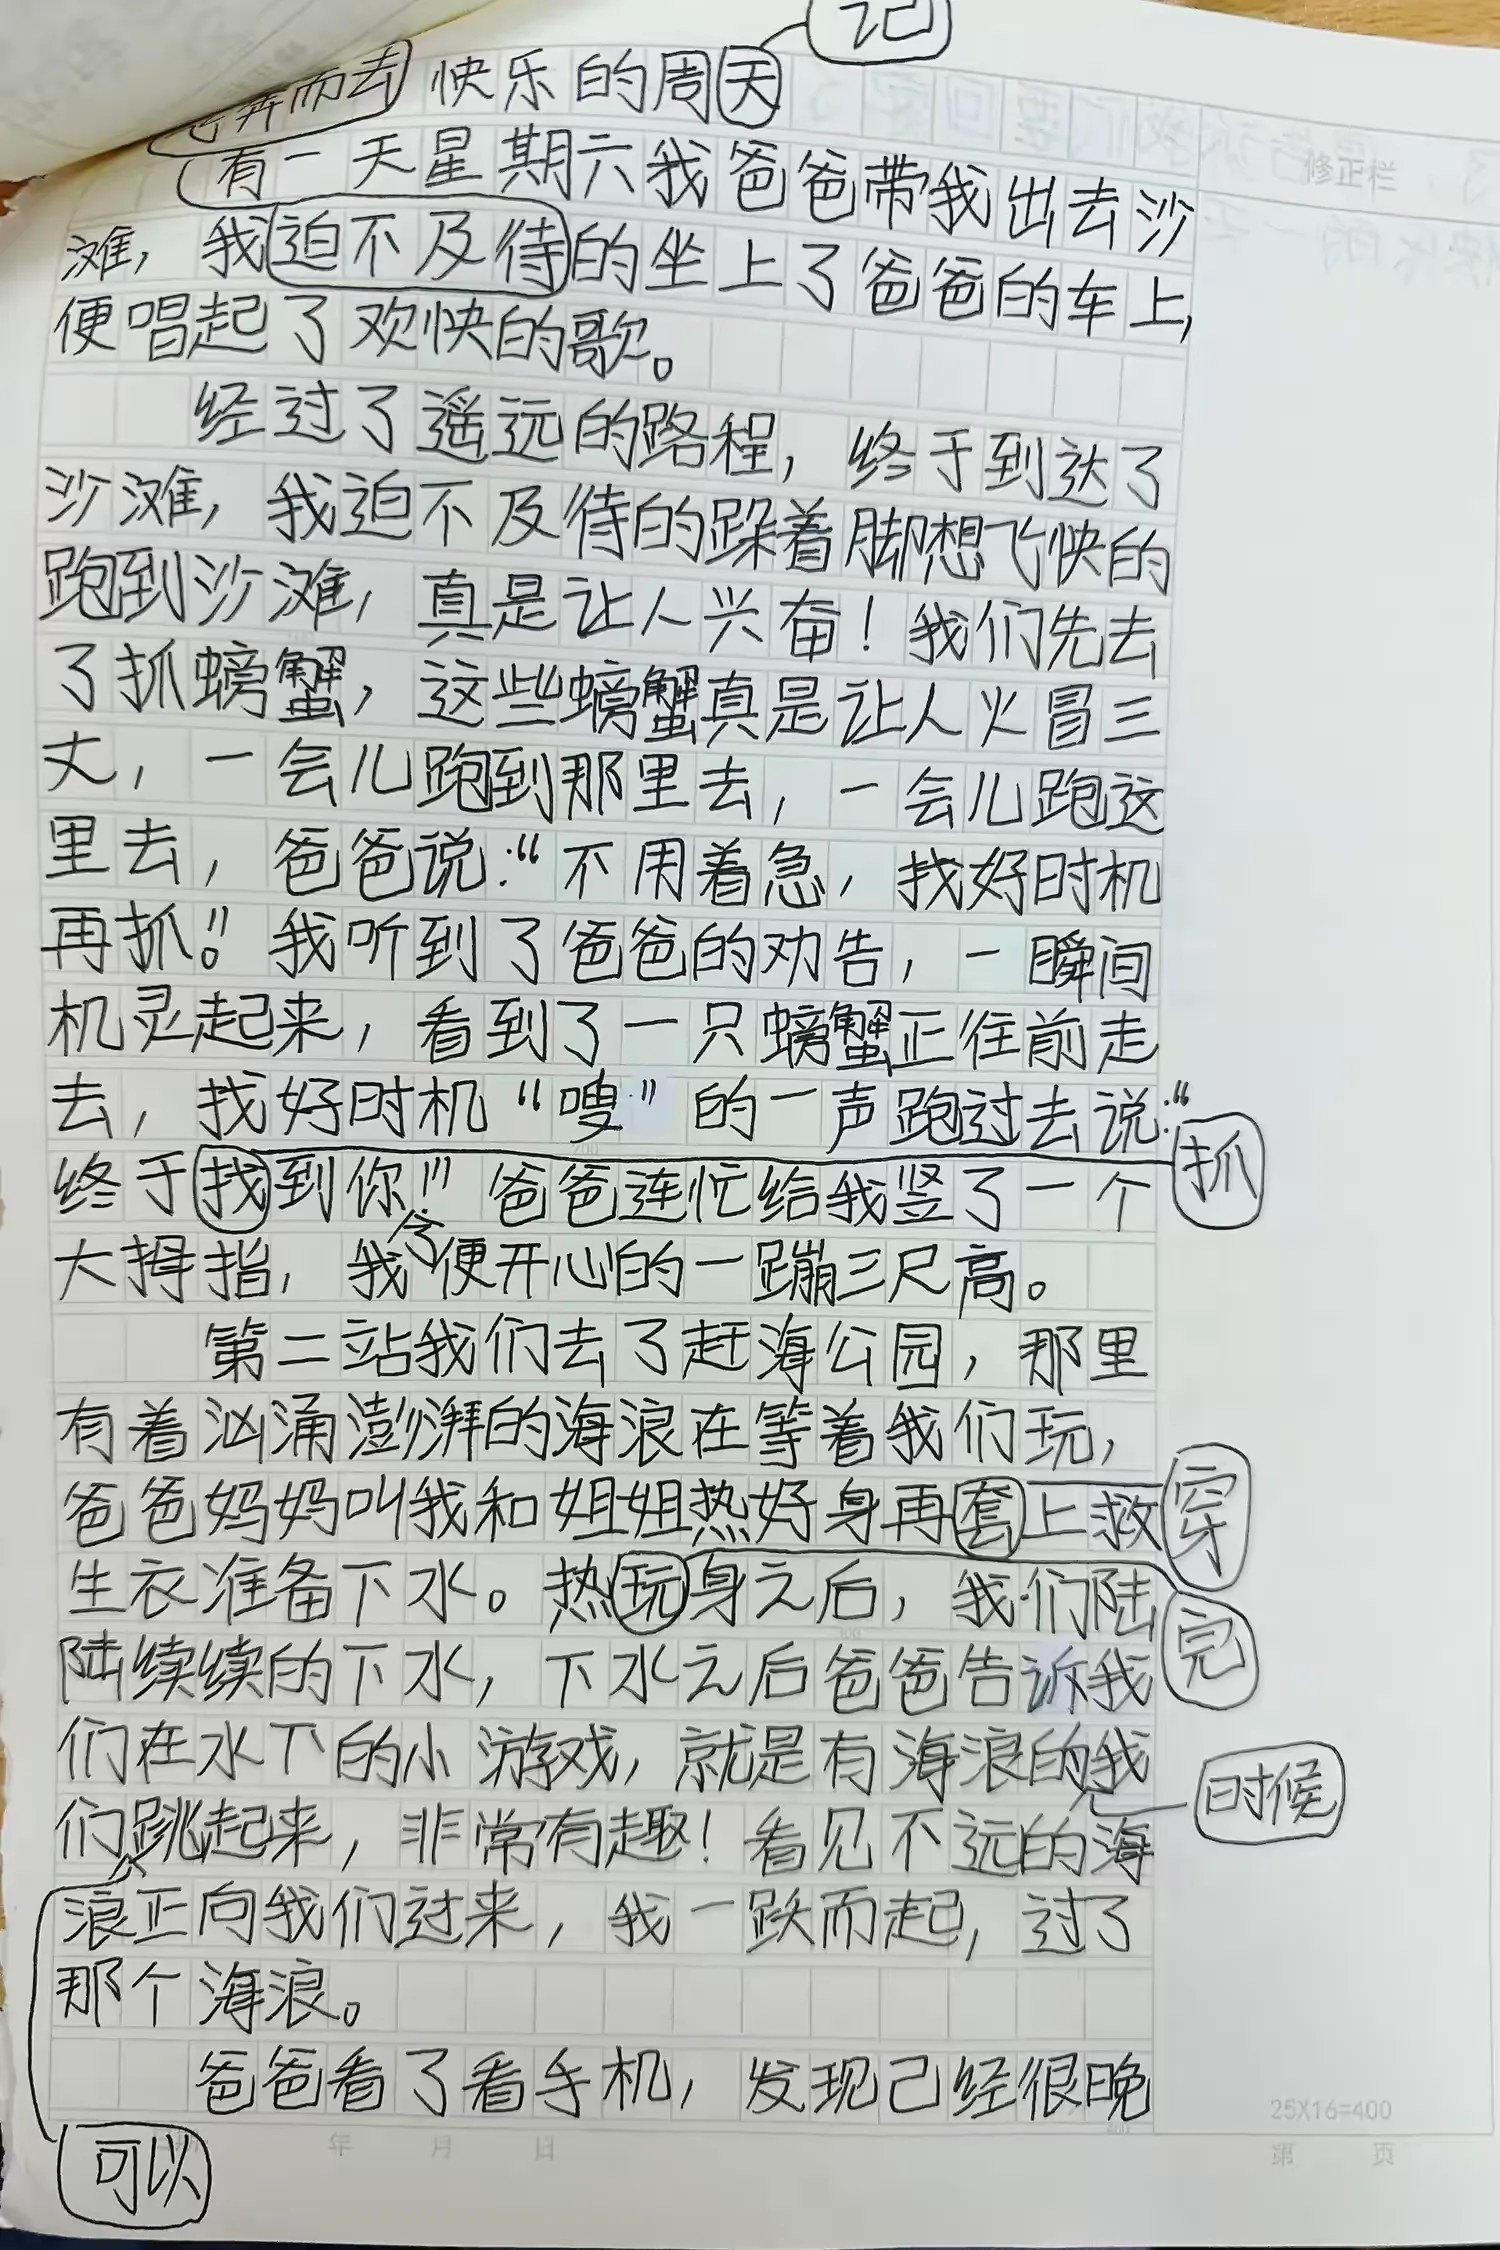 记
奔而去 快乐的周天
修正栏
有一天星期六我爸爸带我出去沙
滩，我迫不及待的坐上了爸爸的车上，
便唱起了欢快的歌。
经过了遥远的路程，终于到达了
沙滩，我迫不及待的跺着脚想飞快的
跑到沙滩，真是让人兴奋！我们先去
了抓螃蟹，这些螃蟹真是让人火冒三
丈，一会儿跑到那里去，一会儿跑这
里去，爸爸说：“不用着急，找好时机
再抓。”我听到了爸爸的劝告，一瞬间
机灵起来，看到了一只螃蟹正往前走
去，找好时机“嗖”的一声跑过去说：“
抓
终于找到你！”爸爸连忙给我竖了一个
大拇指，我令便开心的一蹦三尺高。
第二站我们去了赶海公园，那里
有着汹涌澎湃的海浪在等着我们玩，
爸爸妈妈叫我和姐姐热好身再套上救
穿
生衣准备下水。热玩身之后，我们陆
完
陆续续的下水，下水之后爸爸告诉我
们在水下的小游戏，就是有海浪的我
时候
们跳起来，非常有趣！看见不远的海
浪正向我们过来，我一跃而起，过了
那个海浪。
爸爸看了看手机，发现己经很晚
25X16=400
年 月 日
第 页
可以